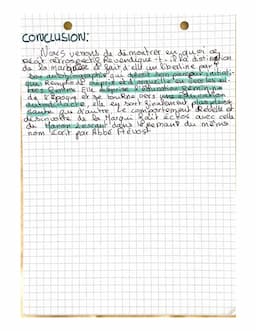 CONCLUSION:
Nous venons de démontrer en quoi ce
récit rétrospectif revendique-t-il la distinction
de la marquise et fait d'elle un libertine par
son autobiographie qui décrit son parcours
rempli d'esprit et
Elle l'éducation féminine
de l'époque et se tourne vers une éducation
autodidacte, elle en sort finalement plus
qu'd'autre. Le comportement rebelle et
de la Marqui fait échos avec celle
de Manon Lescaut dans le romant du même
nom écrit par Abbé Prévost.